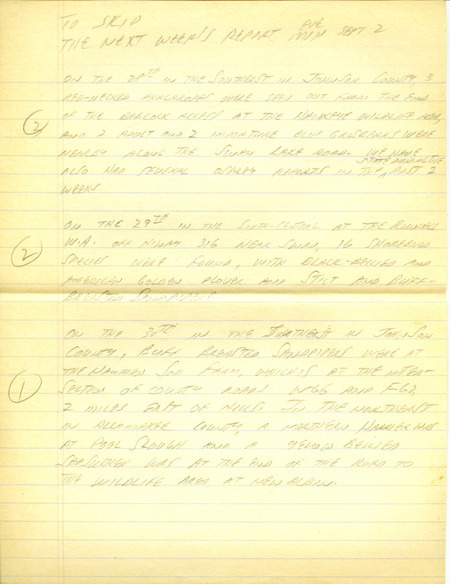 TO SKIP
THE NEXT WEEK'S REPORT EVE SEPT 2
ON THE 28TH IN THE SOUTHEAST IN JOHNSON COUNTY, 3
RED-NECKED PHALAROPES WERE SEEN OUT FROM THE END
OF THE BABCOCK ACCESS AT THE HAWKEYE WILDLIFE AREA,
② AND 2 ADULT AND 2 IMMATURE BLUE GROSBEAKS WERE
NEARBY ALONG THE SWAN LAKE ROAD. WE HAVE
ALSO HAD SEVERAL OSPREY REPORTS IN THE PAST 2
WEEKS
ON THE 29TH IN THE SOUTH-CENTRAL AT THE RUNNELLS
② W.A. OFF HIWAY 316 NEAR SWAN, 16 SHOREBIRD
SPECIES WERE FOUND, WITH BLACK-BELLIED AND
AMERICAN GOLDEN PLOVER AND STILT AND BUFF-
BREASTED SANDPIPERS
ON THE 30TH IN THE IN JOHNSON
COUNTY, BUFF BREASTED SANDPIPERS WERE AT
THE SOD FARM, WHICH IS AT THE INTER-
① SECTION OF COUNTY ROADS AND F-62,
2 MILES EAST OF HILLS. IN THE NORTHEAST
IN ALLAMAKEE COUNTY, A NORTHERN HARRIER WAS
AT POOL SLOUGH AND A YELLOW BELLIED
SAPSUCKER WAS AT THE END OF THE ROAD TO
THE WILDLIFE AREA AT NEW ALBIN.